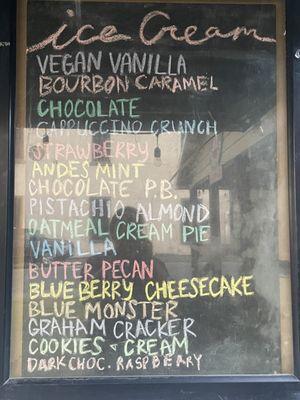 ice Cream
VEGAN VANILLA
BOURBON CARAMEL
CHOCOLATE
CAPPUCCINO CRUNCH
STRAWBERRY
ANDES MINT
CHOCOLATE P.B.
PISTACHIO ALMOND
OATMEAL CREAM PIE
VANILLA
BUTTER PECAN
BLUEBERRY CHEESECAKE
BLUE MONSTER
GRAHAM CRACKER
COOKIES & CREAM
DARK CHOC. RASPBEARY